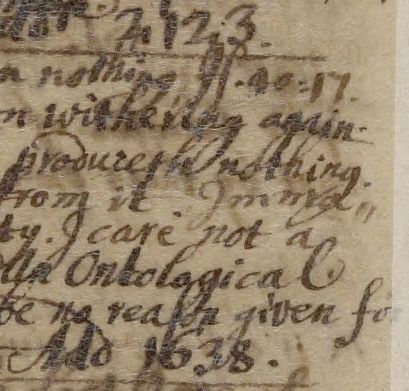 2, 12, 3.
nothing Js. 40:17
withering again.
produceth nothing.
from it Immed„
ty. I care not a
Ontological
be no reason given for
Add 1638.